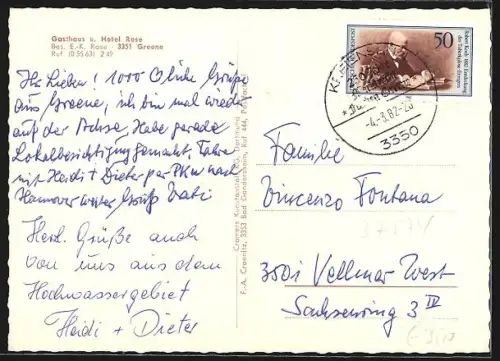 Gasthaus u. Hotel Rose
Bes. E.-K. Rose · 3351 Greene
Ruf (0 55 63) 2 49
Ihr Lieben! 1000 Grüße
aus Greene, ich bin mal wieder
auf der Achse. Habe gerade
Lokalbesichtigung gemacht, fahre
mit Heidi + Dieter per PKW nach
Hannover weiter Gruß
Herzl. Grüße auch
von uns aus dem
Hochwassergebiet
Heidi + Dieter
Cramers Kunstanstalt KG, Dortmund
F.-A. Croenitz, 3353 Bad Gandersheim, Ruf 444
50
Robert Koch 1882 Entdeckung
des Tuberkulose-Erregers
DEUTSCHE BUNDESPOST
3350
Familie
Vincenzo Fontana
3501 Vellmar-West
Sachsenring 3 IV